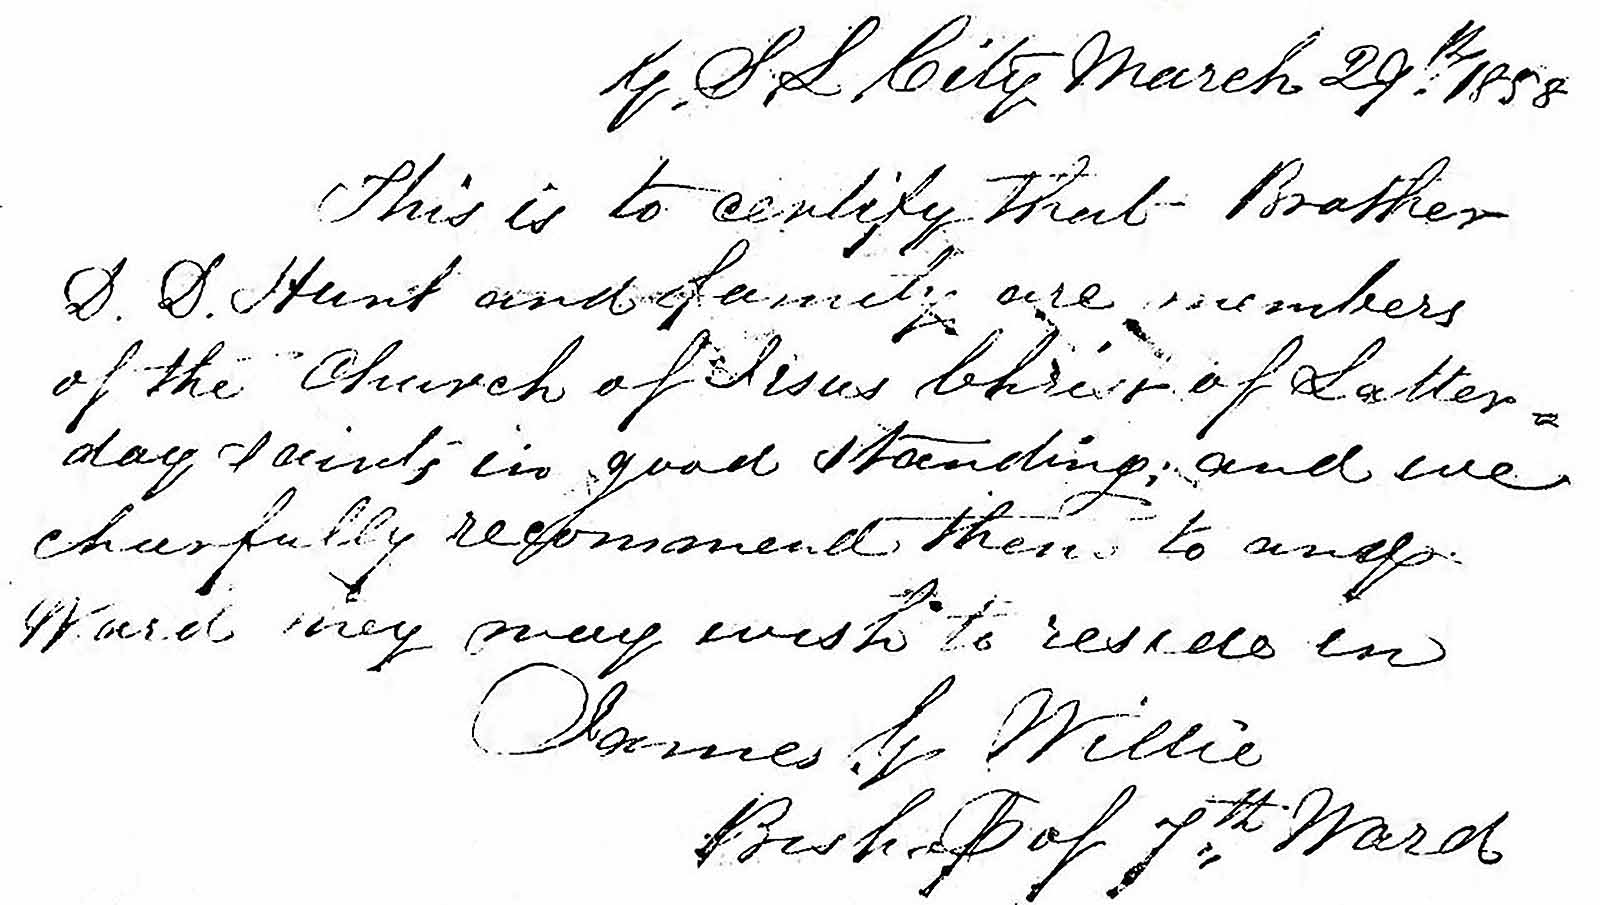 G. S. L. City March 29th 1858
This is to certify that Brother
D. D. Hunt and family are members
of the Church of Jesus Christ of Latter=
day saints in good standing, and we
chearfully recommend them to any
Ward they may wish to reside in
James G Willie
Bishop of 7th Ward